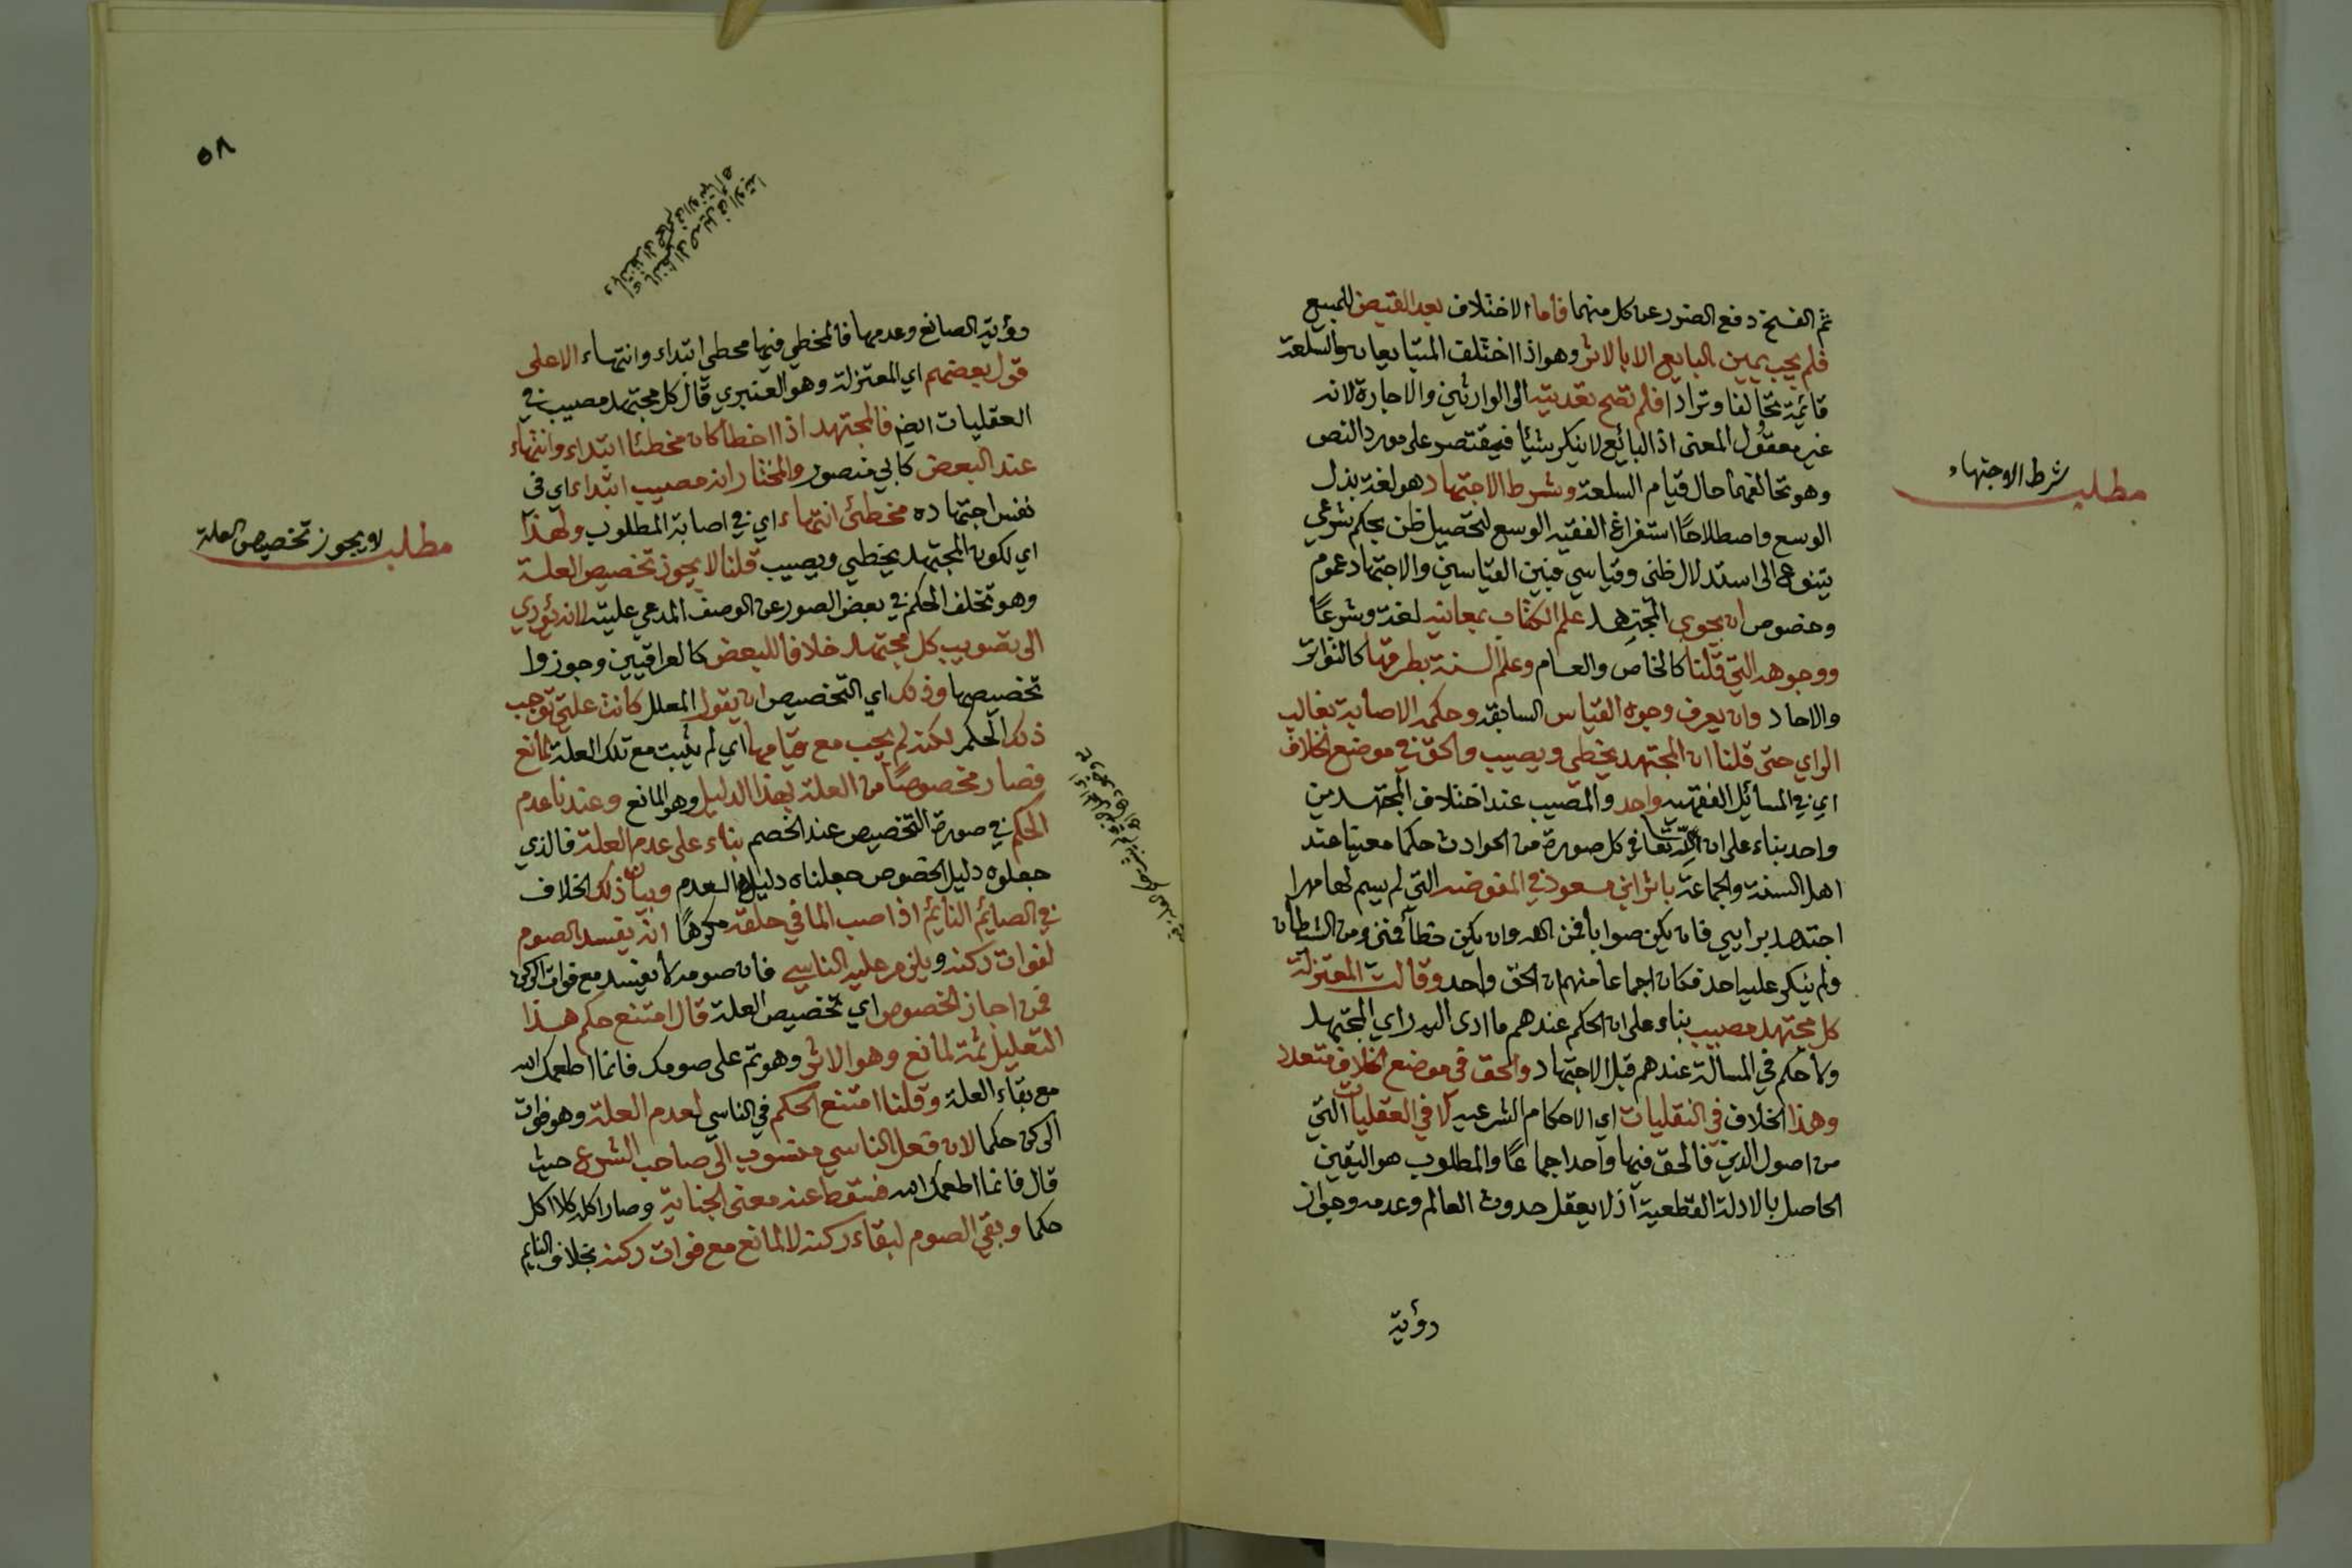 ثم الفسخ دفع الضرر عن كل منهما فاما الاختلاف بعد القبض للمبيع
فلم يجب يمين البايع الا بالاثر وهو اذا اختلف المتبايعان والسلعة
قائمة تحالفا وترادا فلم تصح تعديته الى الوارثين والاجارة لانه
غير معقول المعنى اذ البائع لا ينكر شيئا فيقتصر على مورد النص
وهو تحالفهما حال قيام السلعة وشرط الاجتهاد هو لغة بذل
الوسع واصطلاحًا استفراغ الفقيه الوسع لتحصيل ظن بحكم شرعي
يتنوع الى استدلال ظني وقياسي فبين القياسين والاجتهاد عموم
وخصوص ان يحوي المجتهد علم الكتاب بمعانيه لغة وشرعًا
ووجوهه التي قلنا كالخاص والعام وعلم السنة بطرقها كالتواتر
والاحاد وان يعرف وجوه القياس السابقة وحكمه الاصابة بغالب
الراي حتى قلنا ان المجتهد يخطي ويصيب والحق في موضع الخلاف
اي في المسائل الفقهيه واحد والمصيب عند اختلاف المجتهدين
واحد بناء على ان لله تعا في كل صورة من الحوادث حكما معينا عند
اهل السنة والجماعة باثر ابن مسعود في المفوضة التي لم يسم لها مهرا
اجتهد برايي فان يكن صوابا فمن الله وان يكن خطأ فمني ومن الشيطان
ولم ينكر عليه احد فكان اجماعا منهم ان الحق واحد وقالت المعتزلة
كل مجتهد مصيب بناء على ان الحكم عندهم ما ادى اليه راي المجتهد
ولا حكم في المسالة عندهم قبل الاجتهاد والحق في موضع الخلاف متعدد
وهذا الخلاف في النقليات اي الاحكام الشرعيه لا في العقليات التي
من اصول الدين فالحق فيها واحد اجماعًا والمطلوب هو اليقين
الحاصل بالادلة القطعية اذ لا يعقل حدوث العالم وعدمه وجواز
رؤية
مطلب شرط الاجتهاد
٥٨
رؤية الصانع وعدمها فالمخطي فيها مخطي ابتداء وانتهاء الا على
قول بعضهم اي المعتزلة وهو العنبري قال كل مجتهد مصيب في
العقليات ايض فالمجتهد اذا اخطأ كان مخطئا ابتداء وانتهاء
عند البعض كابي منصور والمختار انه مصيب ابتداء اي في
نفس اجتهاده مخطئ انتهاء اي في اصابة المطلوب ولهذا
اي لكون المجتهد يخطي ويصيب قلنا لا يجوز تخصيص العلة
وهو تخلف الحكم في بعض الصور عن الوصف المدعي عليته لانه يؤدي
الى تصويب كل مجتهد خلافا للبعض كالعراقيين وجوزوا
تخصيصها وذلك اي التخصيص ان يقول المعلل كانت علتي توجب
ذلك الحكم لكنه لم يجب مع قيامها اي لم يثبت مع تلك العلة لمانع
فصار مخصوصًا من العلة بهذا الدليل وهو المانع وعندنا عدم
الحكم في صورة التخصيص عند الخصم بناء على عدم العلة فالذي
جعلوه دليل الخصوص جعلناه دليل العدم وبيان ذلك الخلاف
في الصايم النايم اذا صب الما في حلقه مكرهًا انه يفسد الصوم
لفوات ركنه ويلزم عليه الناسي فان صومه لا يفسد مع فوات الركن
فمن اجاز الخصوص اي تخصيص العلة قال امتنع حكم هذا
التعليل ثمة لمانع وهو الاثر وهو تم على صومك فانما اطعمك الله
مع بقاء العلة وقلنا امتنع الحكم في الناسي لعدم العلة وهو فوات
الركن حكما لان فعل الناسي منسوب الى صاحب الشرع حيث
قال فانما اطعمك الله فسقط عنه معنى الجناية وصار اكله كلا اكل
حكما وبقي الصوم لبقاء ركنه لا لمانع مع فوات ركنه بخلاف النايم
مطلب لا يجوز تخصيص العلة